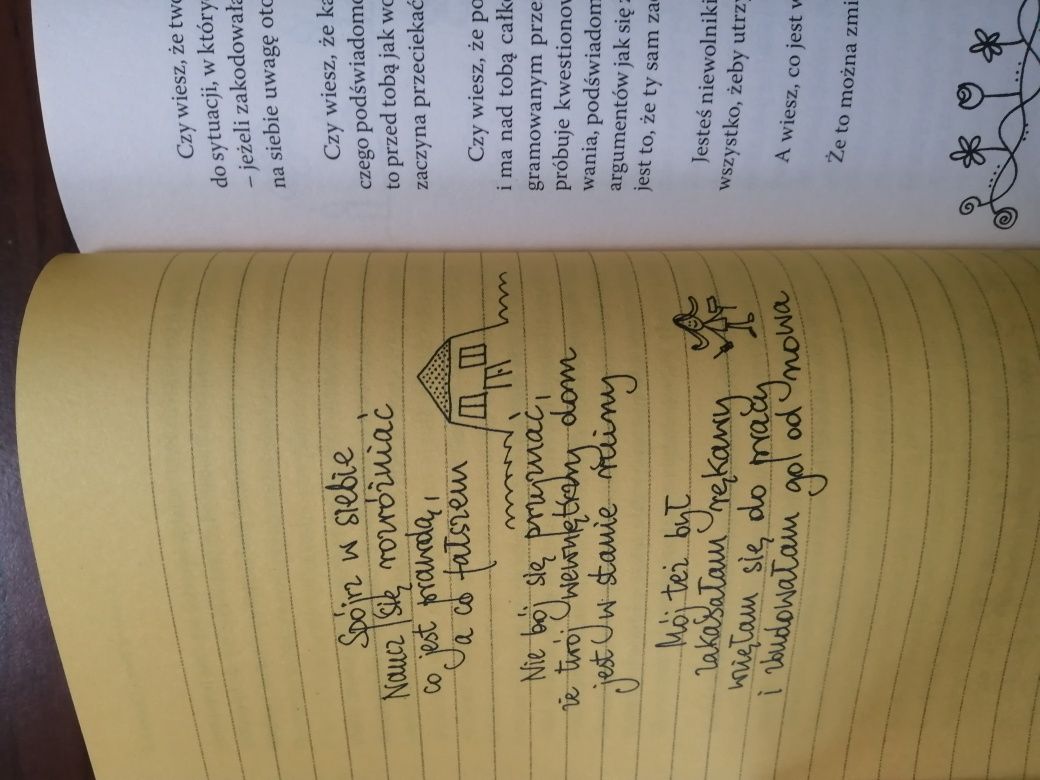 Spójrz w siebie
Naucz się rozróżniać
co jest prawdą,
a co fałszem
Nie bój się przyznać,
że twój wewnętrzny dom
jest w stanie ruiny
Mój też był
zakasałam rękawy
wzięłam się do pracy
i zbudowałam go od nowa
Czy wiesz, że
do sytuacji, w
– jeżeli zakodowała
na siebie uwagę
Czy wiesz, że
czego
to przed tobą jak
zaczyna przeciekać
Czy wiesz, że
i ma nad tobą
próbuje
argumentów jak się
jest to, że ty sam
Jesteś
wszystko, żeby
A wiesz, co jest
Że to można